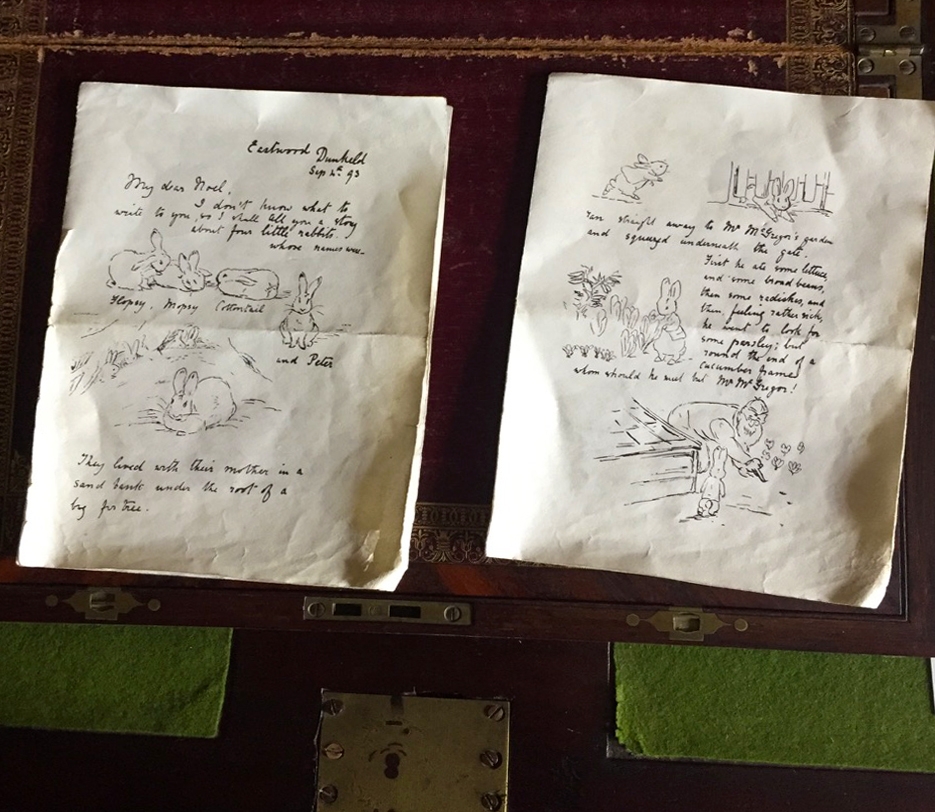 Eastwood Dunkeld
Sep 4th 93
My dear Noel,
I don't know what to
write to you, so I shall tell you a story
about four little rabbits
whose names were_
Flopsy, Mopsy Cottontail
and Peter
They lived with their mother in a
sand bank under the root of a
big fir tree.
ran straight away to Mr McGregor's garden
and squeezed underneath the gate.
First he ate some lettuce,
and some broad beans,
then some radishes, and
then, feeling rather sick,
he went to look for
some parsley; but
round the end of a
cucumber frame
whom should he meet but Mr McGregor!